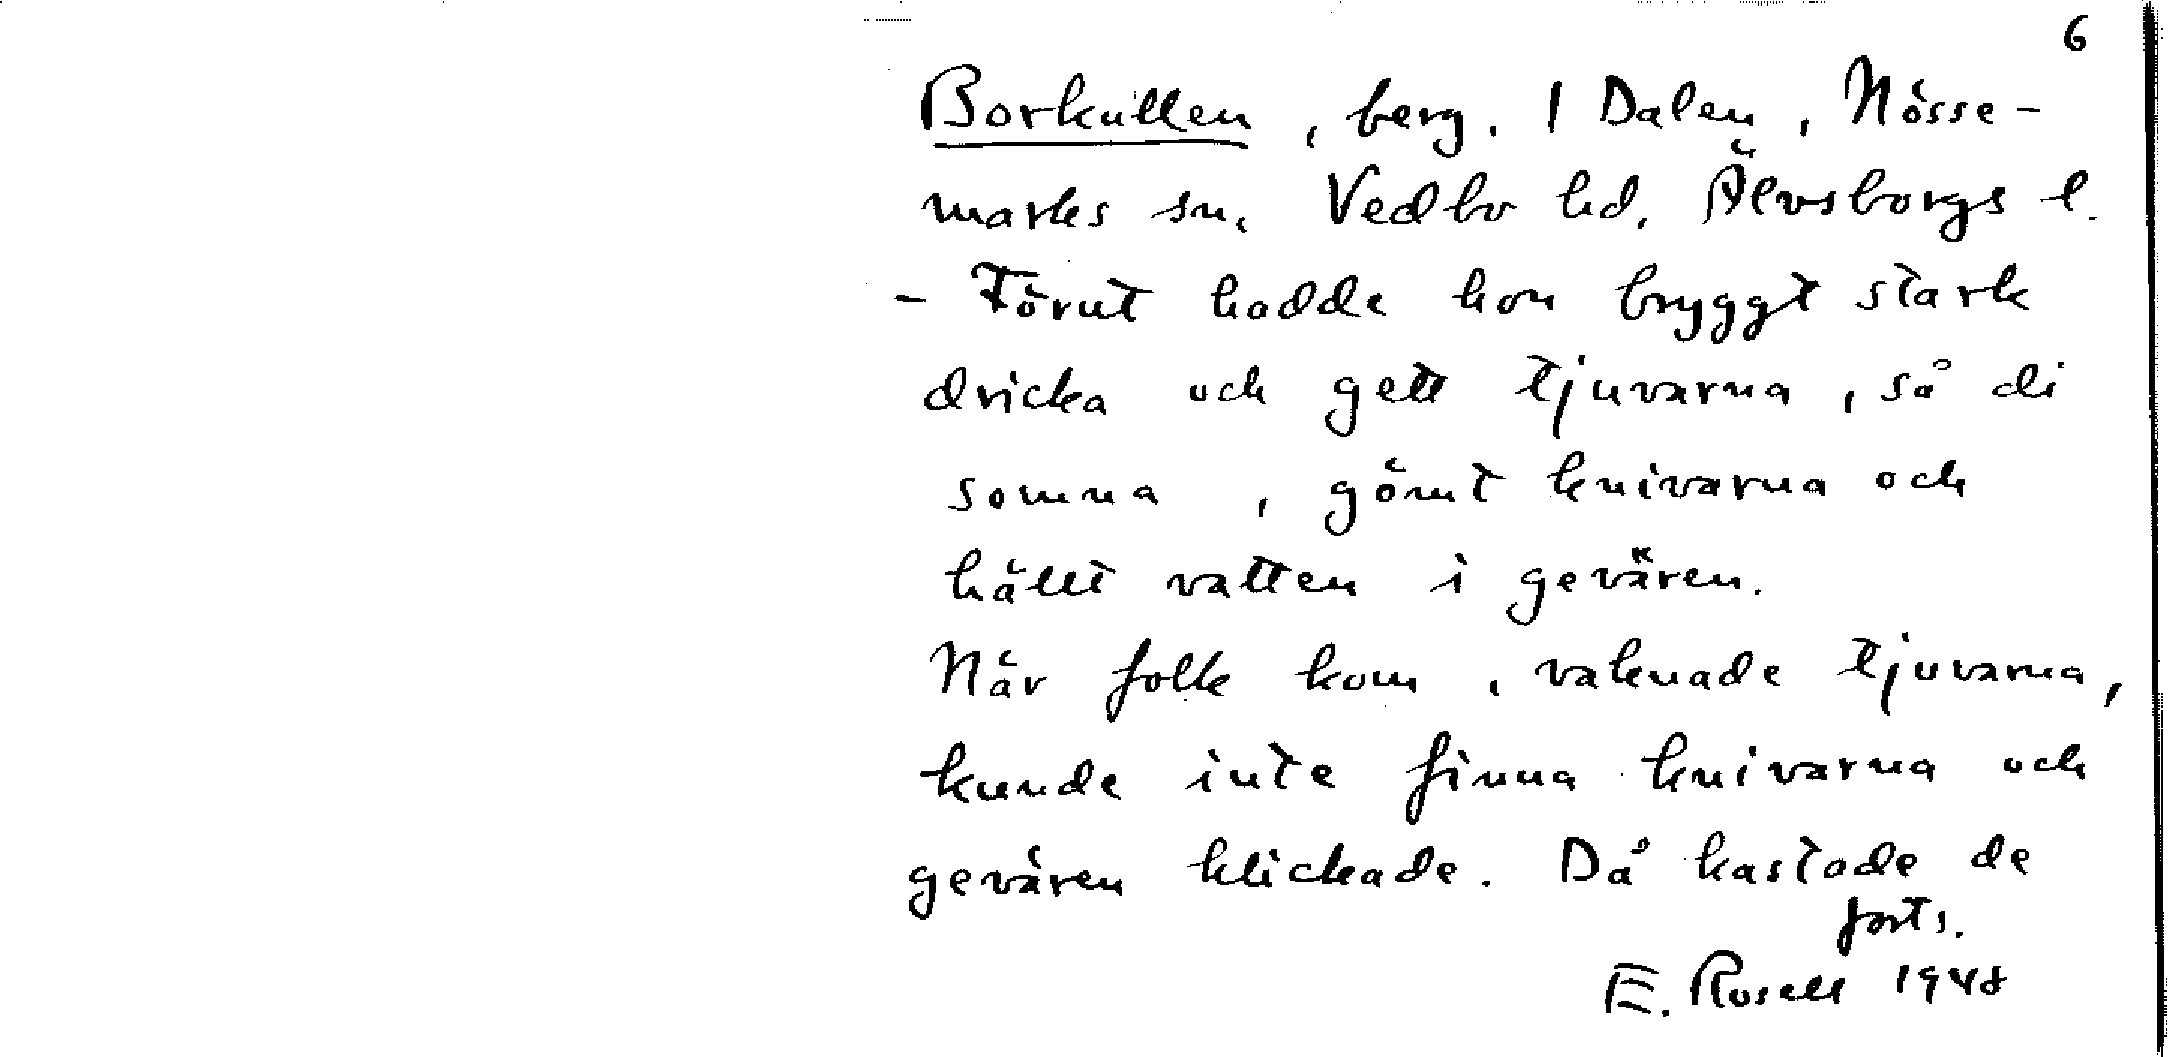 6
Borkullen, berg. 1 Dalen, Nösse-
marks sn. Vedbo hd. Älvsborgs l.
- Förut hadde hon bryggt stark
dricka och gett tjuvarna, så di
somna, gömt knivarna och
hällt vatten i gevären.
När folk kom, vaknade tjuvarna,
kunde inte finna knivarna och
gevären klickade. Då kastade de
forts.
E. Rosell 1948